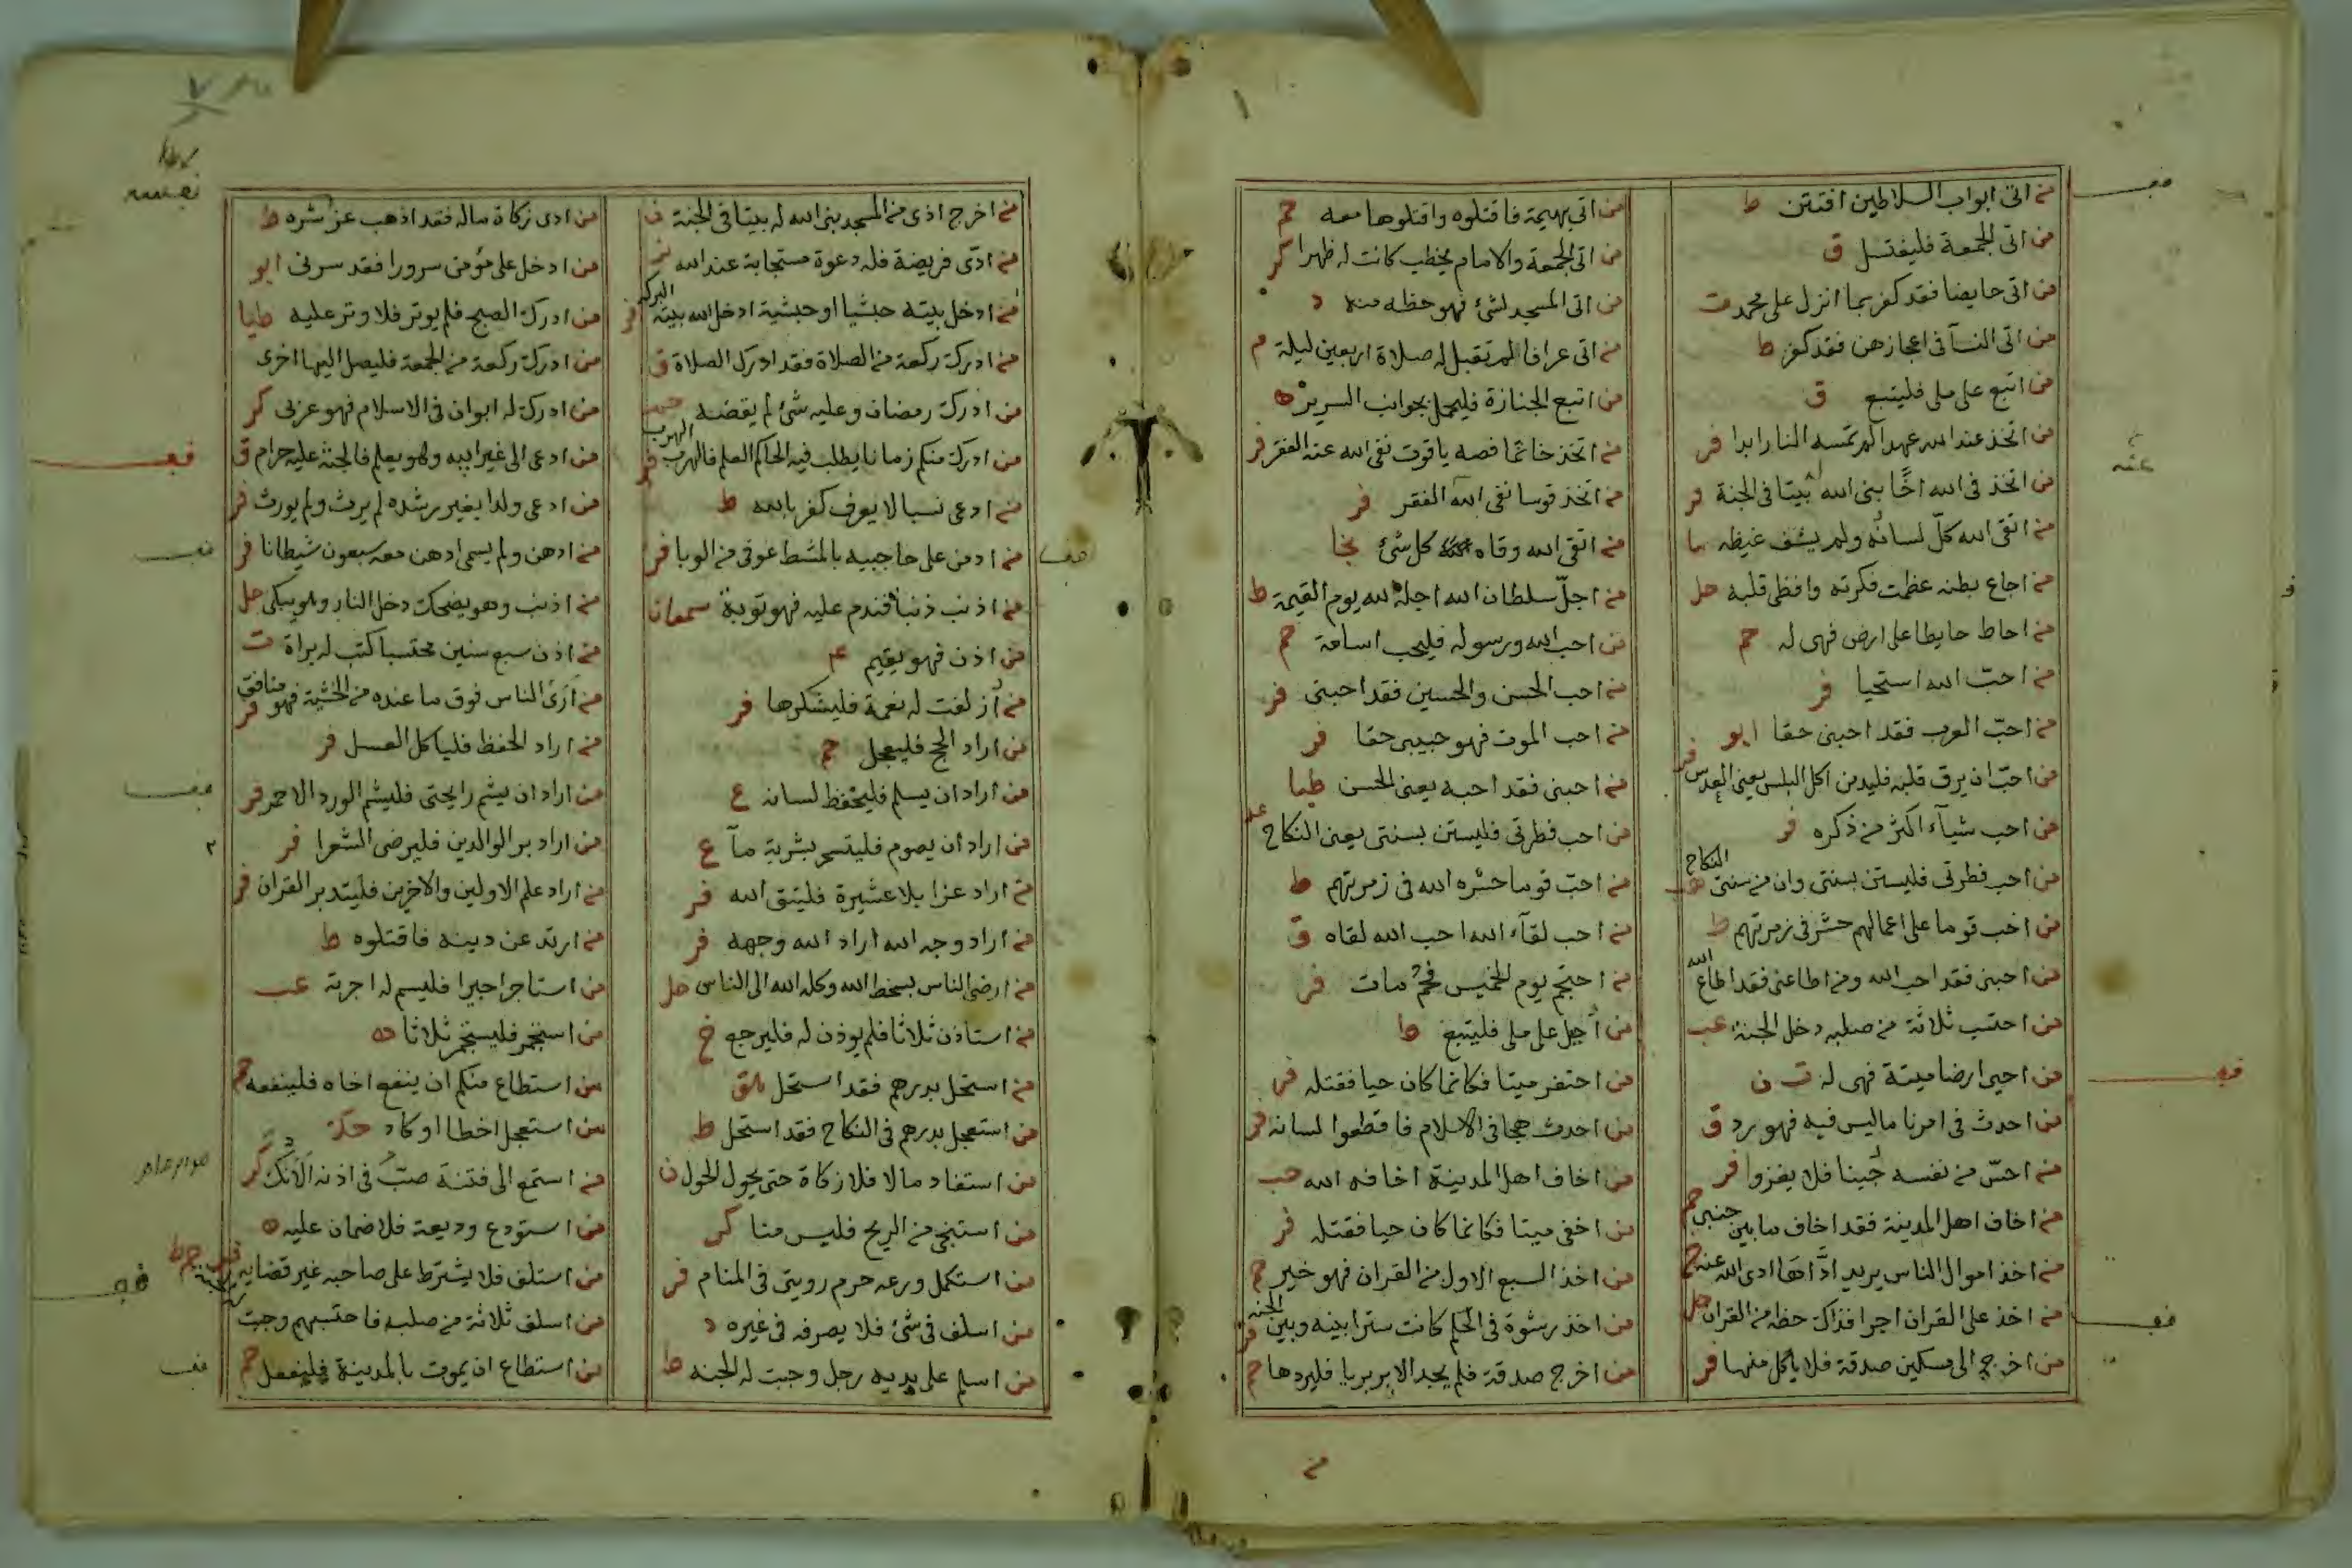 من اتى ابواب السلاطين افتتن ط
من اتى الجمعة فليغتسل ق
من اتى حايضا فقد كفر بما انزل على محمد ت
من اتى النسآ فى اعجازهن فقد كفر ط
من اتبع على ملى فليتبع ق
من اتخذ عند الله عهدا لم تمسه النار ابدا فر
من اتخذ فى الله اخًا بنى الله له بيتا فى الجنة فر
من اتقى الله كلّ لسانه ولم يشف غيظه
من اجاع بطنه عظمت فكرته وافظى قلبه حل
من احاط حايطا على ارض فهى له حم
من احبّ الله استحيا فر
من احبّ العرب فقد احبنى حقا ابو
من احبّ ان يرق قلبه فليدمن اكل البلس يعنى العدس فر
من احب شيآء اكثر من ذكره فر
من احب فطرتى فليستن بسنتى وان من سنتى النكاح هب
من احب قوما على اعمالهم حشر فى زمرتهم ط
من احبنى فقد احب الله ومن اطاعنى فقد اطاع الله
من احتسب ثلاثة من صلبه دخل الجنة عب
من احيى ارضا ميتة فهى له ت ن
من احدث فى امرنا ما ليس فيه فهو رد ق
من احسّ من نفسه جُبنا فلا يغزوا فر
من اخاف اهل المدينة فقد اخاف ما بين جنبى حم
من اخذ اموال الناس يريد ادآءها ادى الله عنه حم
من اخذ على القران اجرا فذاك حظه من القران حل
من اخرج الى مسكين صدقة فلا ياكل منها فر
من اتى بهيمة فاقتلوه واقتلوها معه حم
من اتى الجمعة والامام يخطب كانت له ظهرا كر
من اتى المسجد لشئ فهو حظه منه د
من اتى عرافا لم تقبل له صلاة اربعين ليلة م
من اتبع الجنازة فليحمل بجوانب السرير ه
من اتخذ خاتما فصه ياقوت نفى الله عنه الفقر فر
من اتخذ قوسا نفى الله الفقر فر
من اتقى الله وقاه كل شئ نجا
من اجلّ سلطان الله اجله الله يوم القيمة ط
من احب الله ورسوله فليحب اسامة حم
من احب الحسن والحسين فقد احبنى فر
من احب الموت فهو حبيبى حقا فر
من احبنى فقد احبه يعنى الحسن طيا
من احب فطرتى فليستن بسنتى يعنى النكاح
من احبّ قوما حشره الله فى زمرتهم ط
من احب لقآء الله احب الله لقاه ق
من احتجم يوم الخميس فحُم مات فر
من أحيل على ملى فليتبع ط
من احتفر ميتا فكانما كان حيا فقتله فر
من احدث هجا فى الاسلام فاقطعوا لسانه فر
من اخاف اهل المدينة اخافه الله حب
من اخفى ميتا فكانما كان حيا فقتله فر
من اخذ السبع الاول من القران فهو خير حم
من اخذ رشوة فى الحكم كانت سترا بينه وبين الجنه فر
من اخرج صدقة فلم يجد الا بربريا فليردها حم
من اخرج اذى من المسجد بنى الله له بيتا فى الجنة ن
من ادّى فريضة فله دعوة مستجابة عند الله
من ادخل بيته حبشيا او حبشية ادخل الله بيته البركه فر
من ادرك ركعة من الصلاة فقد ادرك الصلاة ق
من ادرك رمضان وعليه شئ لم يقضه
من ادرك منكم زمانا يطلب فيه الحاكم العلم فالهرب الهرب فر
من ادعى نسبا لا يعرف كفر بالله ط
من ادمن على حاجبيه بالمشط عوفى من الوبا فر
من اذنب ذنبا فندم عليه فهو توبة سمعان
من اذن فهو يقيم
من أزلفت له نعمة فليشكرها فر
من اراد الحج فليعجل حم
من اراد ان يسلم فليحفظ لسانه ع
من اراد ان يصوم فليتسحر بشربة مآ ع
من اراد عزا بلا عشيرة فليتق الله فر
من اراد وجه الله اراد الله وجهه فر
من ارضى الناس بسخط الله وكله الله الى الناس حل
من استاذن ثلاثا فلم يوذن له فليرجع خ
من استحل بدرهم فقد استحل هق
من استعجل بدرهم فى النكاح فقد استحل ط
من استفاد مالا فلا زكاة حتى يحول الحول ن
من استنجى من الريح فليس منا كر
من استكمل ورعه حرم رويتى فى المنام فر
من اسلف فى شئ فلا يصرفه فى غيره د
من اسلم على يديه رجل وجبت له الجنه ط
من ادى زكاة ماله فقد اذهب عن شره ط
من ادخل على مؤمن سرورا فقد سرنى ابو
من ادرك الصبح فلم يوتر فلا وتر عليه طيا
من ادرك ركعة من الجمعة فليصل اليها اخرى
من ادرك له ابوان فى الاسلام فهو عربى كر
من ادعى الى غير ابيه وهو يعلم فالجنة عليه حرام ق
من ادعى ولدا بغير رشده لم يرث ولم يورث فر
من ادهن ولم يسمى ادهن معه سبعون شيطانا فر
من اذنب وهو يضحك دخل النار وهو يبكى حل
من اذن سبع سنين محتسبا كتب له براة ت
من أرَى الناس فوق ما عنده من الخشية فهو منافق فر
من اراد الحفظ فلياكل العسل فر
من اراد ان يشم رايحتى فليشم الورد الاحمر فر
من اراد بر الوالدين فليرضى الشعرا فر
من اراد علم الاولين والاخرين فليتدبر القران فر
من ارتد عن دينه فاقتلوه ط
من استاجر اجيرا فليسم له اجرته عب
من استجمر فليستجمر ثلاثا
من استطاع منكم ان ينفع اخاه فلينفعه حم
من استعجل اخطا او كاد
من استمع الى فتنة صبّ فى اذنه الآنك كر
من استودع وديعة فلا ضمان عليه ه
من استلف فلا يشترط على صاحبه غير قضايه
من اسلف ثلاثة من صلبه فاحتسبهم وجبت
من استطاع ان يموت بالمدينة فليفعل حم
من